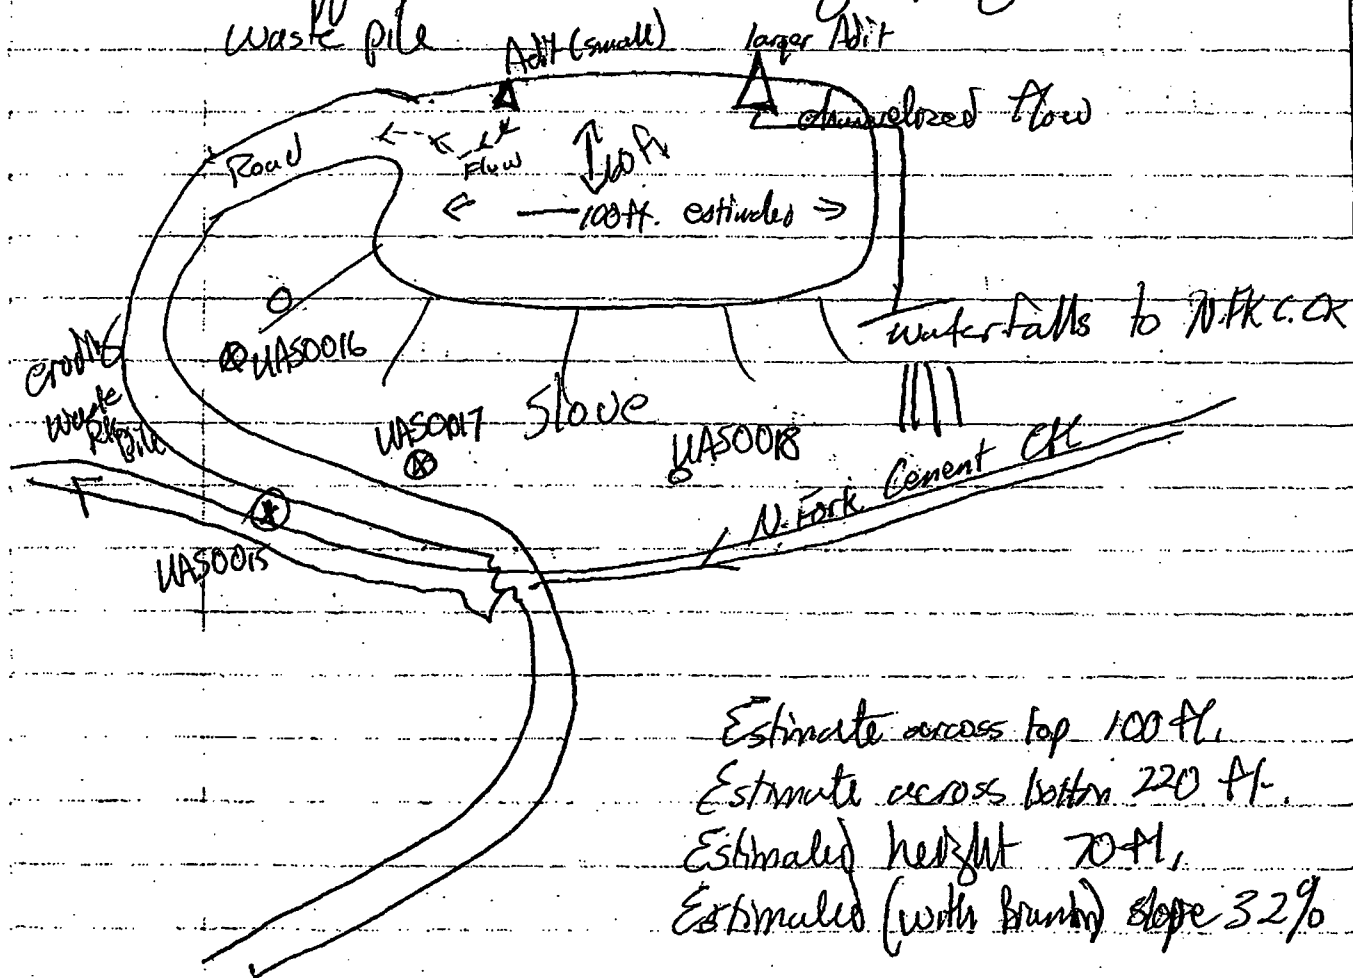 waste pile
Adit (small)
larger Adit
channelized flow
Road
Flow
60 ft
100 ft. estimated
waterfalls to N.FK C. CK
UASO016
eroding
waste
Pile
UASO017
Slope
UASO018
N. Fork Cement CK
UASO015
Estimate across top 100 ft.
Estimate across bottom 220 ft.
Estimated height 70 ft.
Estimated (with Brunton) slope 32%